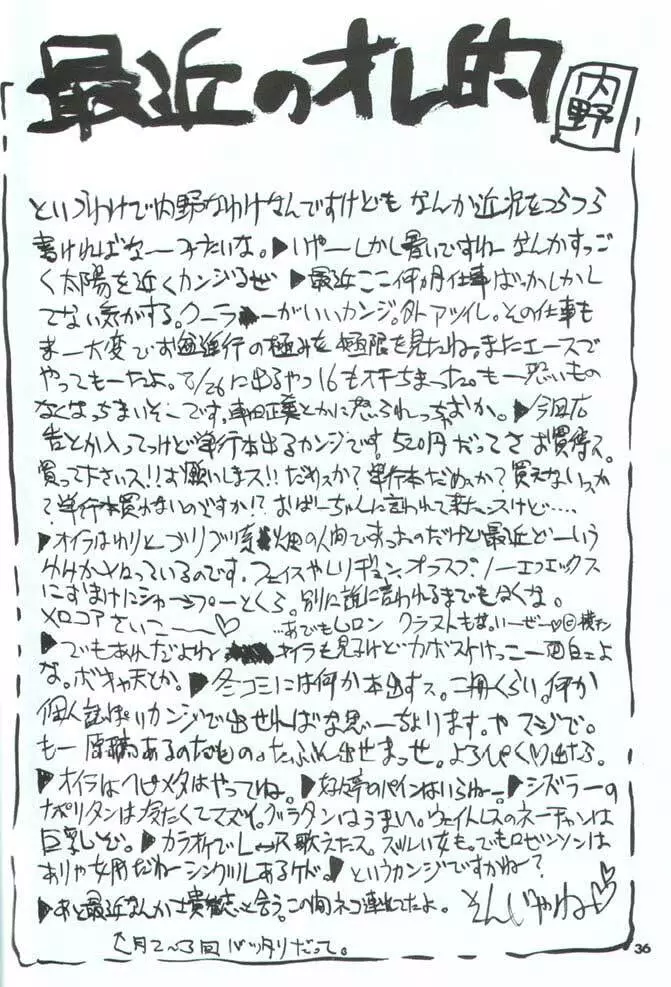 最近のオレ的
内野
というわけで内野なわけなんですけども なんか近況をつらつら
書ければなーみたいな。▶いやーしかし暑いですねーなんかすっご
く太陽を近くカンジるぜ ▶最近ここ何ヵ月仕事ばっかしかし
てない気がする。クーラーがいいカンジ。外アツイし。その仕事も
まー大変です 進行の極みを極限を見たね。またエースで
やってもーたよ。8/26に出るやつ16もオチちまった。もー恐いもの
なくなっちまいそーです。車田正美とかに怒られっちまおか。▶今回広
告とか入ってっけど単行本出るカンジです。520円だってさ お買得ス。
買って下さいス!!お願いしまス!!だめスか?単行本だめスか?買えないスか
?単行本買わないのですか!?おばーちゃんに言われて来たスけど……
▶オイラはわりとゴリゴリ系 畑の人間ですったのだけど最近どーいう
わけかメロっているのです。フェイスやレリジョン、オフスプ、ノーエフエックス
におまけにシャープーとくら。別に誰に言われるまでもなくな。
メロコアさいこー〜♡ …あでもLロン クラストも
▶でもあれだよね オイラも見る けどカボスけっこー面白ェよ
な。ボキャ天とか。▶冬コミには何か本出すス。二冊くらい。何か
個人誌ぽいカンジで出せればな思ーちょります。や マジで。
もー原稿あるのなもの。たぶん出せまっせ。よろぴく♡出たら
▶オイラはヘビメタはやってねー。▶ のパインはいらねー。▶シズラーの
ナポリタンは冷たくてマズイ。グラタンはうまい。ウェイトレスのネーチャンは
巨乳 ▶カラオケでL 歌えたス。ズルい女も。でもロビンソンは
ありゃ だねーシングルあるケド。▶というカンジですかねー?
▶あと最近なんか士貴智志と会う。この前ネコ連れてたよ。 そんじゃね♡♡
月2〜3回バッタリだって。
36